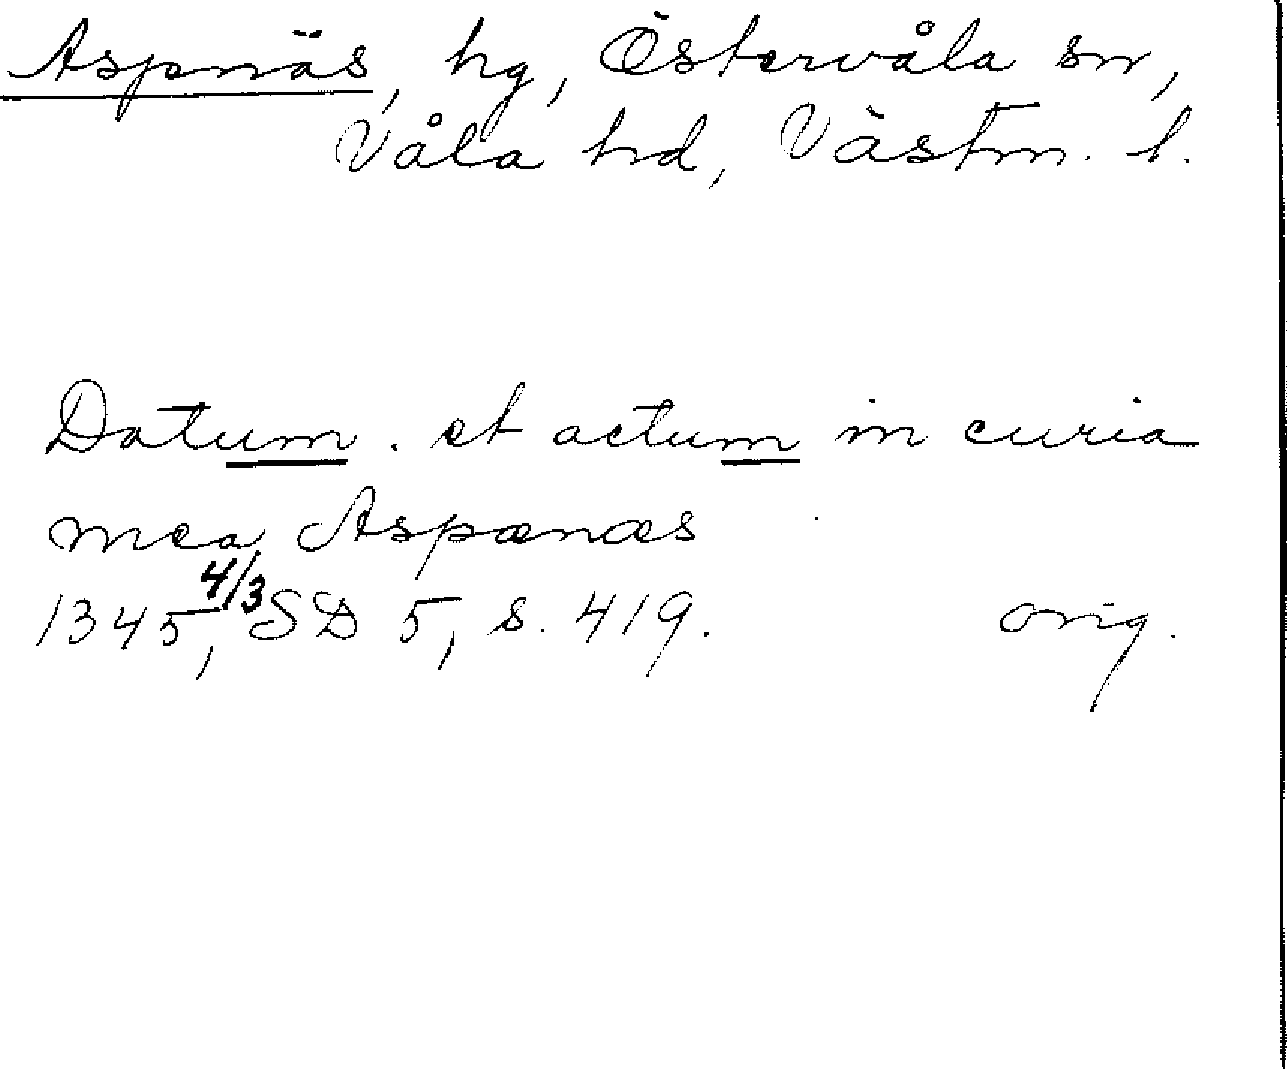 Aspnäs, hg, Östervåla sn,
Våla hd, Västm. l.
Datum . et actum in curia
mea Aspænæs
1345, 4/3 SD 5, s. 419. orig.